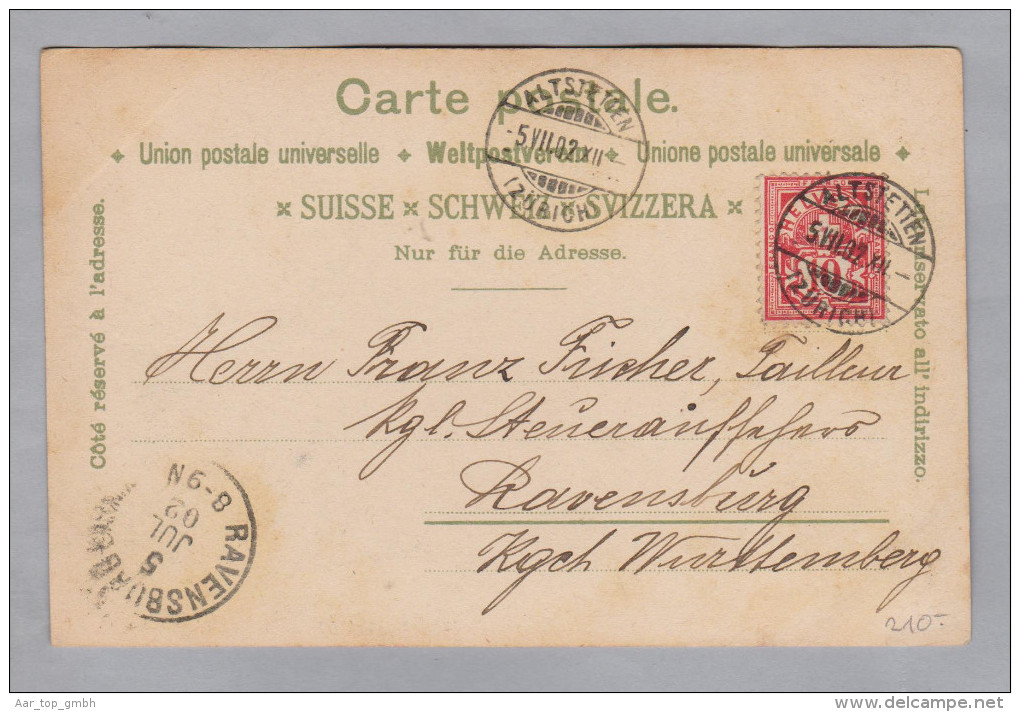 Carte postale.
Union postale universelle Weltpostverein Unione postale universale
SUISSE SCHWEIZ SVIZZERA
Nur für die Adresse.
Côté réservé à l'adresse.
Lato riservato all' indirizzo.
ALTSTETTEN
-5.VII.02.XII-
(ZÜRICH)
HELVETIA
10
ALTSTETTEN
5.VII.02.XII-
(ZÜRICH)
Herrn Franz Fischer, Tailleur
Kgl. Steueraufsehers
Ravensburg
Kgch Württemberg
RAVENSBURG
5
JUL
02
8-9N
210.-
Aar_top_gmbh
delcampe.net